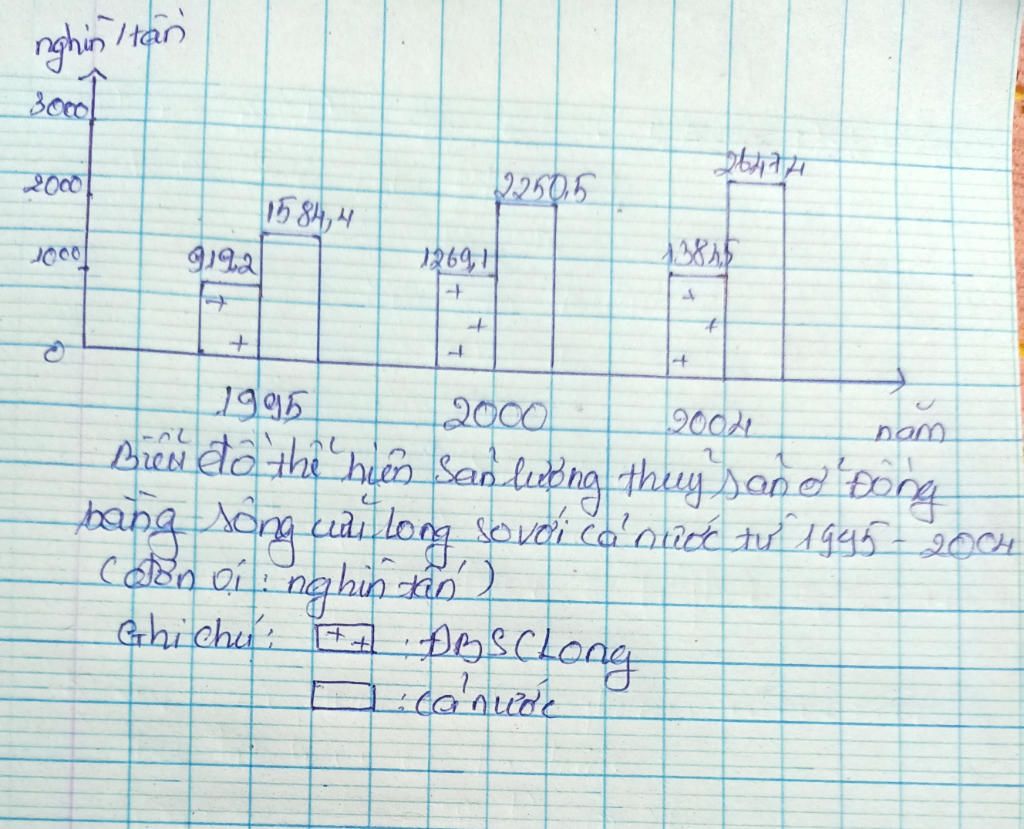 nghìn/tấn
3000
2647,4
2000
2250,5
1584,4
1000
919,2
1269,1
1384,5
0
1995
2000
2004
năm
Biểu đồ thể hiện sản lượng thuỷ sản ở Đồng
bằng sông cửu long so với cả nước từ 1995 - 2004
(đơn vị : nghìn tấn)
Ghi chú:
: ĐBSCLong
: cả nước